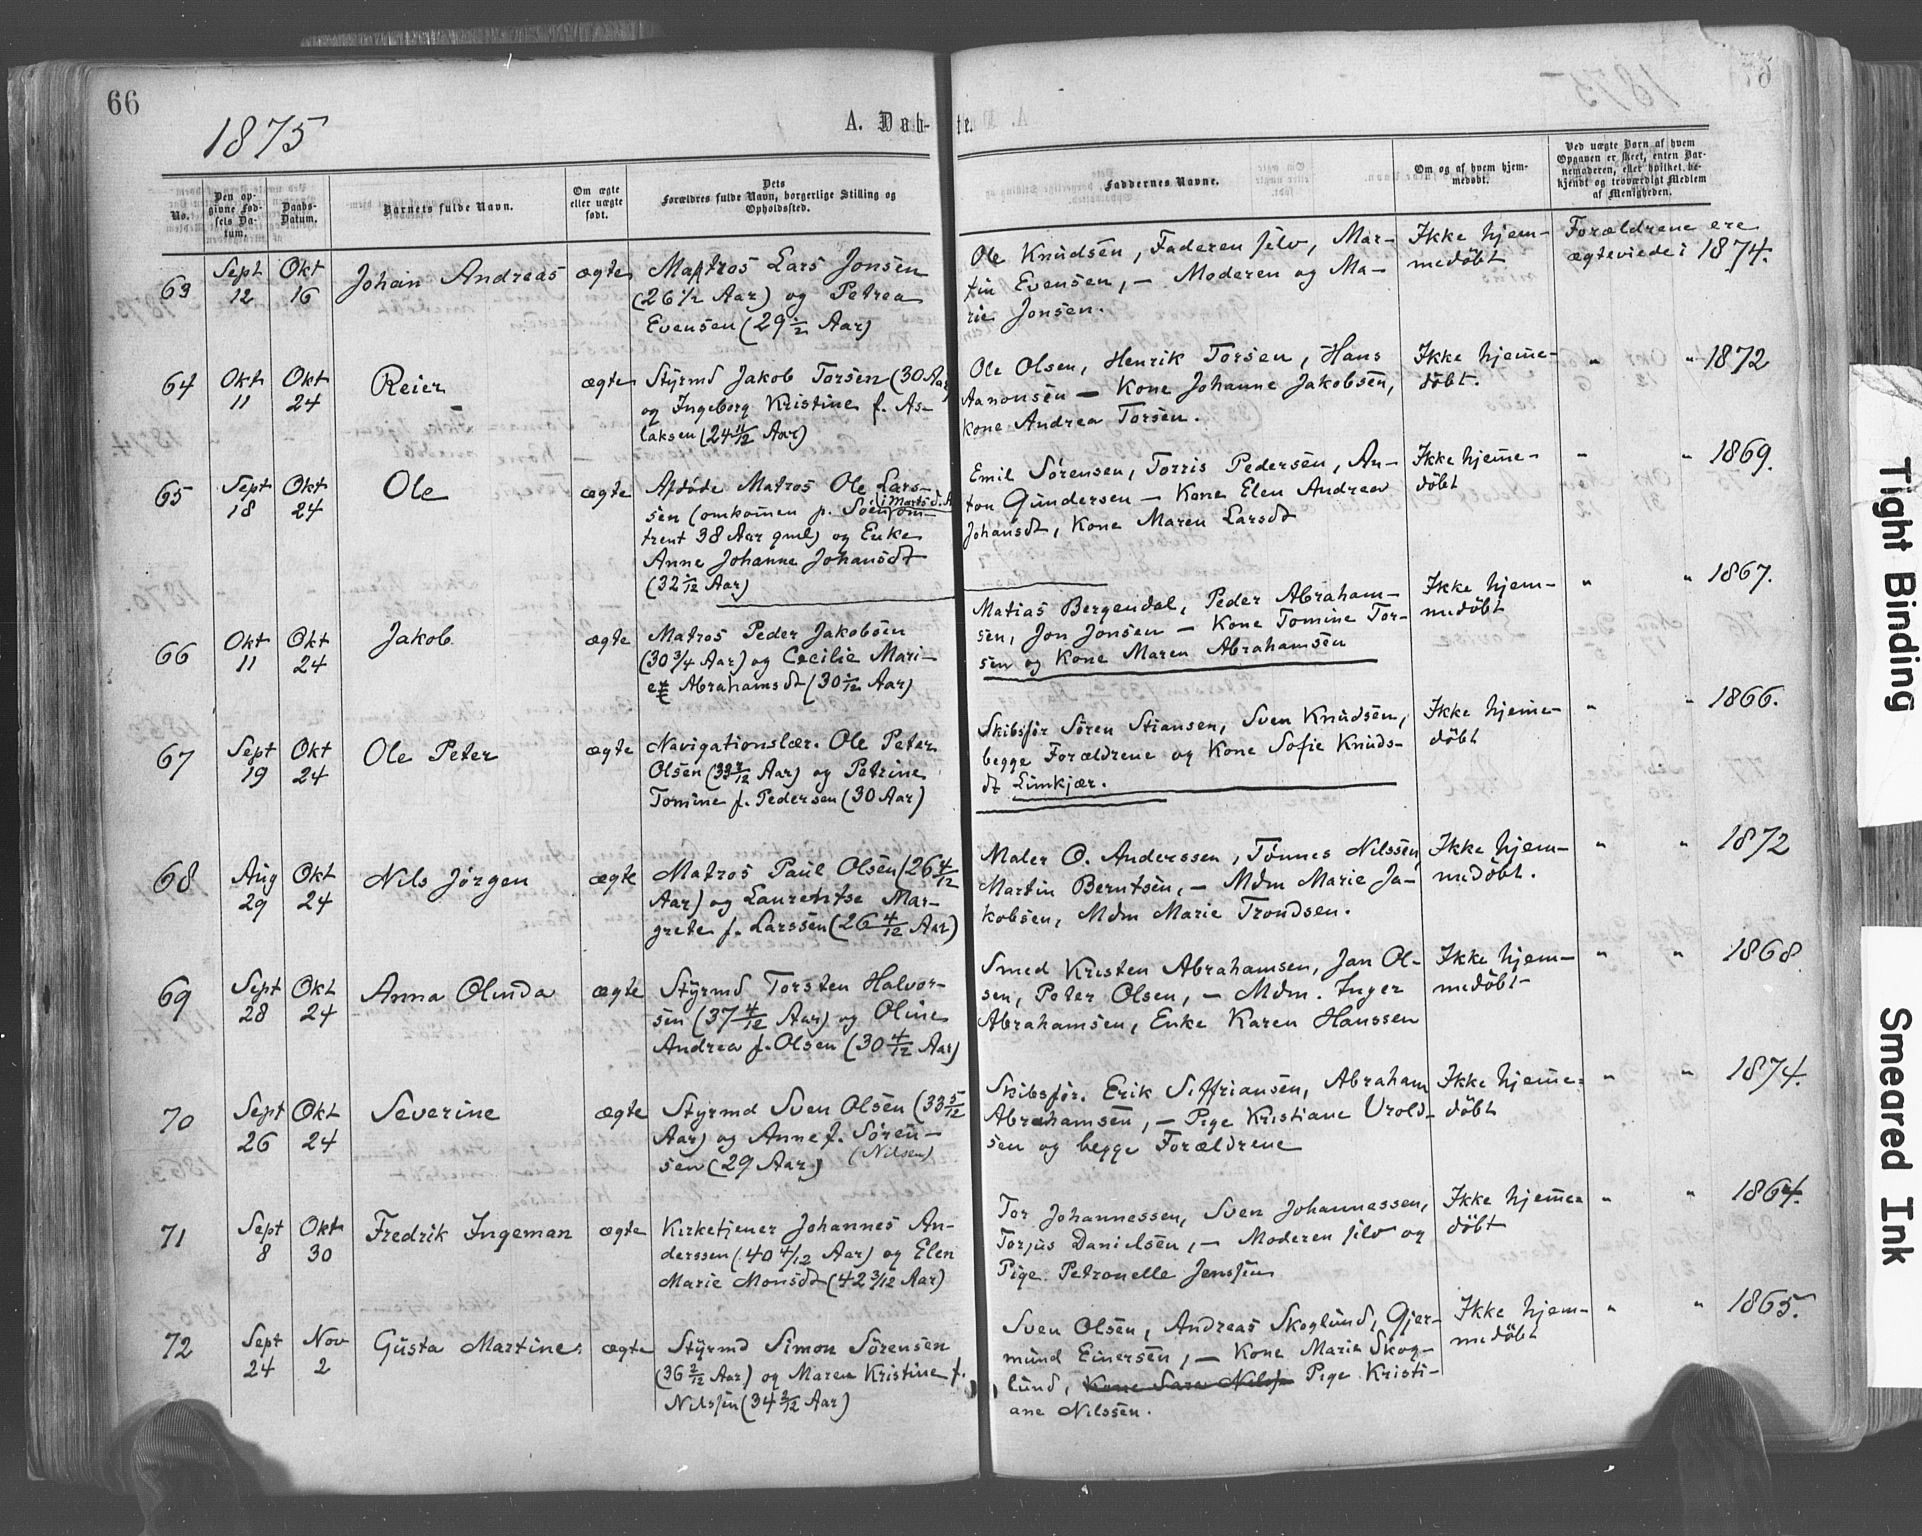 66
1875
A. Døb-
te.
No.
Den op-
givne Fød-
sels Da-
tum.
Daabs-
Datum.
Barnets fulde Navn.
Om ægte
eller uægte
født.
Dets
Forældres fulde Navn, borgerlige Stilling og
Opholdssted.
Faddernes Navne.
Om og af hvem hjem-
medøbt.
Ved uægte Børn af hvem
Opgaven er skeet, enten Bar-
nemoderen, eller hvilket be-
kjendt og troværdigt Medlem
af Menigheden.
63
Sept
12
Okt
16
Johan Andreas
ægte
Matros Lars Jonsen
(26 1/2 Aar) og Petrea
Evensen (29 Aar)
Ole Knudsen, Faderen selv, Mar-
tin Evensen, — Moderen og Ma-
rie Jonsen.
Ikke hjem-
medøbt
Forældrene ere
ægteviede i 1874.
64
Okt
11
Okt
24
Reier
ægte
Styrmd Jakob Torsen (30 Aar)
og Ingeborg Kristine f. As-
laksen (24 11/12 Aar)
Ole Olsen, Henrik Torsen, Hans
Aanonsen — Kone Johanne Jakobsen,
Kone Andrea Torsen.
Ikke hjemme-
døbt.
" " 1872
65
Sept
18
Okt
24
Ole
ægte
Afdøde Matros Ole Lars-
sen (omkommen p. Søen i Marts d. A. om-
trent 38 Aar gml) og Enke
Anne Johanne Johansdt
(32 1/12 Aar)
Emil Sørensen, Torris Pedersen, An-
ton Gundersen — Kone Elen Andrea
Johansdt, Kone Maren Larsdt
Ikke hjemme-
døbt
" " 1869.
66
Okt
11
Okt
24
Jakob
ægte
Matros Peder Jakobsen
(30 3/4 Aar) og Cecilie Mari-
e Abrahamsdt (30 Aar)
Matias Bergendal, Peder Abraham-
sen, Jon Jonsen — Kone Tomine Tor-
sen og Kone Maren Abrahamsen
Ikke hjem-
medøbt
" " 1867.
67
Sept
19
Okt
24
Ole Peter
ægte
Navigationslær. Ole Peter
Olsen (33 Aar) og Petrine
Tomine f. Pedersen (30 Aar)
Skibsfør Søren Stiansen, Sven Knudsen,
begge Forældrene og Kone Sofie Knuds-
dt Limkjær.
Ikke hjemme-
døbt
" " 1866.
68
Aug
29
Okt
24
Nils Jørgen
ægte
Matros Paul Olsen (26 4/12
Aar) og Laurentse Mar-
grete f. Larssen (26 4/12 Aar)
Maler O. Anderssen, Tønnes Nilssen,
Martin Berntsen, — Mdm Marie Ja-
kobsen, Mdm Marie Trondsen.
Ikke hjem-
medøbt.
" " 1872
69
Sept
28
Okt
24
Anna Olinda
ægte
Styrmd Torsten Halvor-
sen (37 4/12 Aar) og Oline
Andrea f. Olsen (30 4/12 Aar)
Smed Kristen Abrahamsen, Jan Ol-
sen, Peter Olsen, — Mdm. Inger
Abrahamsen, Enke Karen Hanssen
Ikke hjem-
medøbt
" " 1868
70
Sept
26
Okt
24
Severine
ægte
Styrmd Sven Olsen (33 5/12
Aar) og Anne f. Søren-
sen (29 Aar) (Nilsen)
Skibsfør. Erik Siffriansen, Abraham
Abrahamsen, — Pige Kristiane Urold-
sen og begge Forældrene
Ikke hjemme-
døbt
" " 1874.
71
Sept
8
Okt
30
Fredrik Ingeman
ægte
Kirketjener Johannes An-
derssen (40 4/12 Aar) og Elen
Marie Monsdt (42 3/12 Aar)
Tor Johannessen, Sven Johannessen,
Torjus Danielsen, — Moderen selv og
Pige Petronelle Jenssen
Ikke hjemme-
døbt
" " 1864.
72
Sept
24
Nov
2
Gusta Martine
ægte
Styrmd Simon Sørensen
(36 2/12 Aar) og Maren Kristine f.
Nilssen (34 2/12 Aar)
Sven Olsen, Andreas Skoglund, Gjer-
mund Einersen, — Kone Marie Skog-
lund, Kone Sara Nilss Pige Kristi-
ane Nilssen.
Ikke hjem-
medøbt
" " 1865.
Tight Binding
Smeared Ink